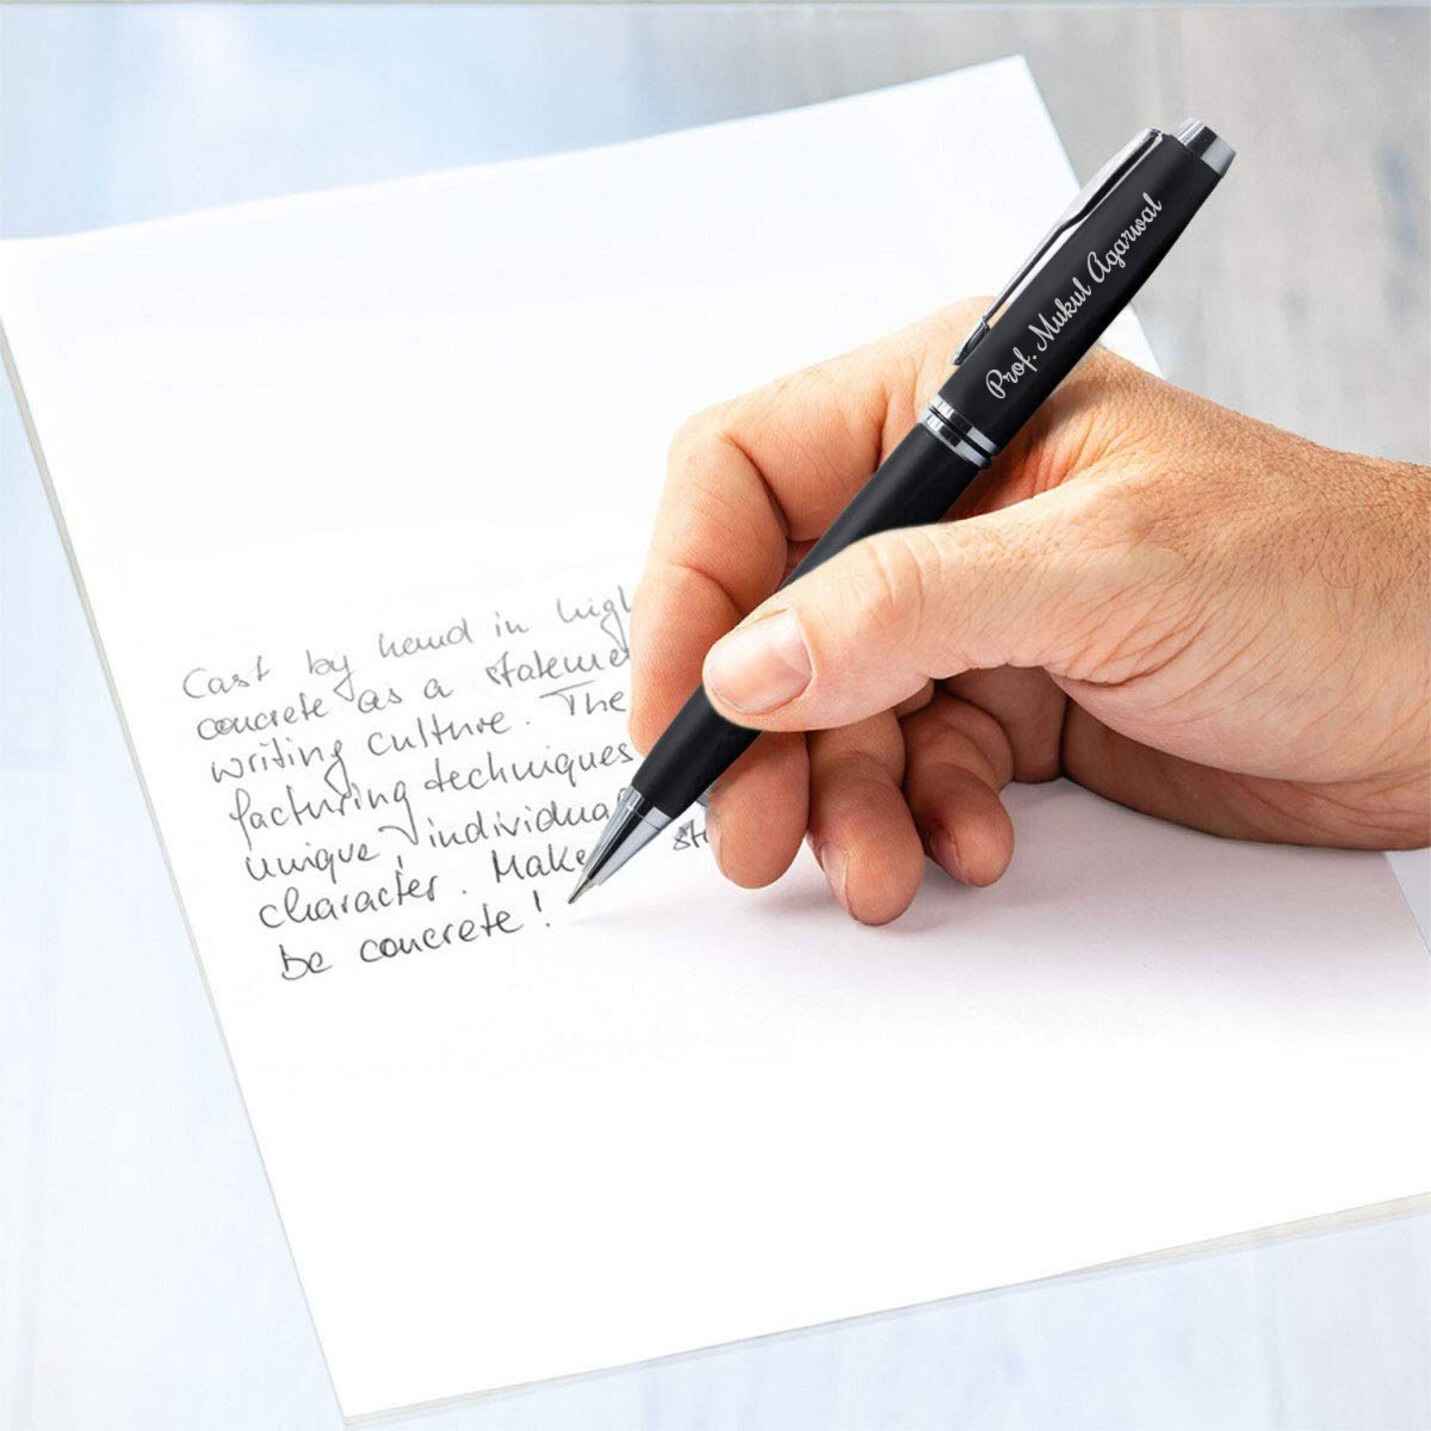 Prof. Mukul Agarwal
Cast by hand in high
concrete as a stateme
writing culture. The
facturing techniques
unique, individua
character. Make st
be concrete!